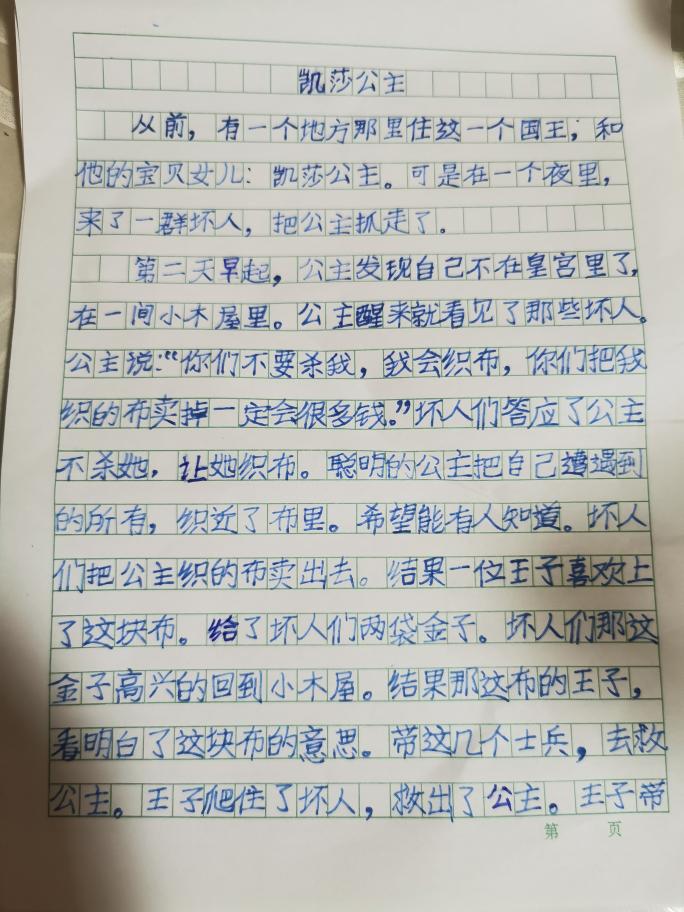 凯莎公主
从前，有一个地方那里住这一个国王，和
他的宝贝女儿：凯莎公主。可是在一个夜里，
来了一群坏人，把公主抓走了。
第二天早起，公主发现自己不在皇宫里了，
在一间小木屋里。公主醒来就看见了那些坏人。
公主说：“你们不要杀我，我会织布，你们把我
织的布卖掉一定会很多钱。”坏人们答应了公主
不杀她，让她织布。聪明的公主把自己遭遇到
的所有，织近了布里。希望能有人知道。坏人
们把公主织的布卖出去。结果一位王子喜欢上
了这块布。给了坏人们两袋金子。坏人们那这
金子高兴的回到小木屋。结果那这布的王子，
看明白了这块布的意思。带这几个士兵，去救
公主。王子爬住了坏人，救出了公主。王子带
第 页